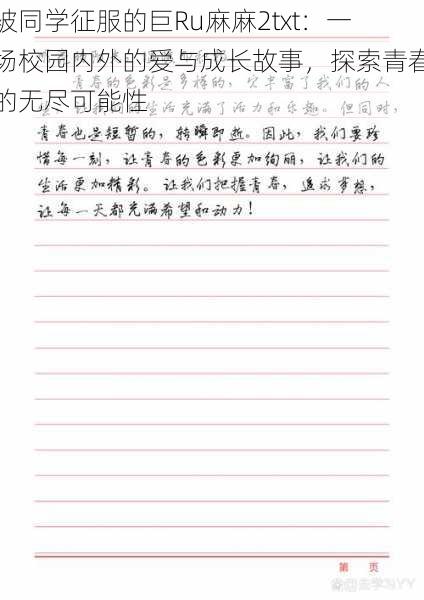 被同学征服的巨Ru麻麻2txt：一
场校园内外的爱与成长故事，探索青春
的无尽可能性
青春的色彩是多样的，它丰富了我们的人
生，让我们的生活充满了活力和乐趣。但同时，
青春也是短暂的，转瞬即逝。因此，我们要珍
惜每一刻，让青春的色彩更加绚丽，让我们的
生活更加精彩。让我们把握青春，追求梦想，
让每一天都充满希望和动力！
第 页
去学习YY